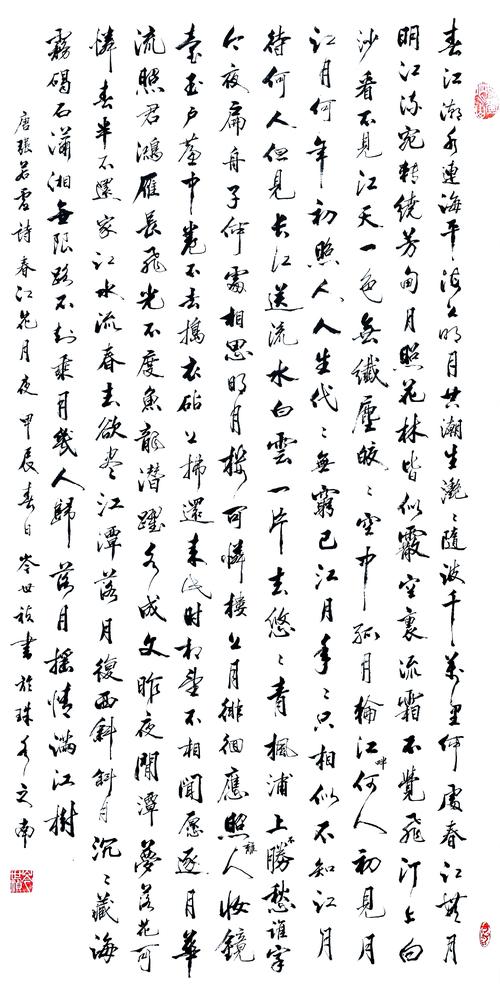 春江潮水連海平海上明月共潮生灧〻隨波千萬里何處春江無月
明江流宛轉繞芳甸月照花林皆似霰空裏流霜不覺飛汀上白
沙看不見江天一色無纖塵皎〻空中孤月輪江畔何人初見月
江月何年初照人人生代〻無窮已江月年〻只相似不知江月
待何人但見長江送流水白雲一片去悠〻青楓浦上不勝愁誰家
今夜扁舟子何處相思明月樓可憐樓上月徘徊應照離人妝鏡
臺玉戶簾中卷不去搗衣砧上拂還來此時相望不相聞愿逐月華
流照君鴻雁長飛光不度魚龍潛躍水成文昨夜閒潭夢落花可
憐春半不還家江水流春去欲盡江潭落月復西斜斜月沉〻藏海
霧碣石瀟湘無限路不知乘月幾人歸落月搖情滿江樹
唐張若虛詩春江花月夜甲辰春日岑世書於珠水之南